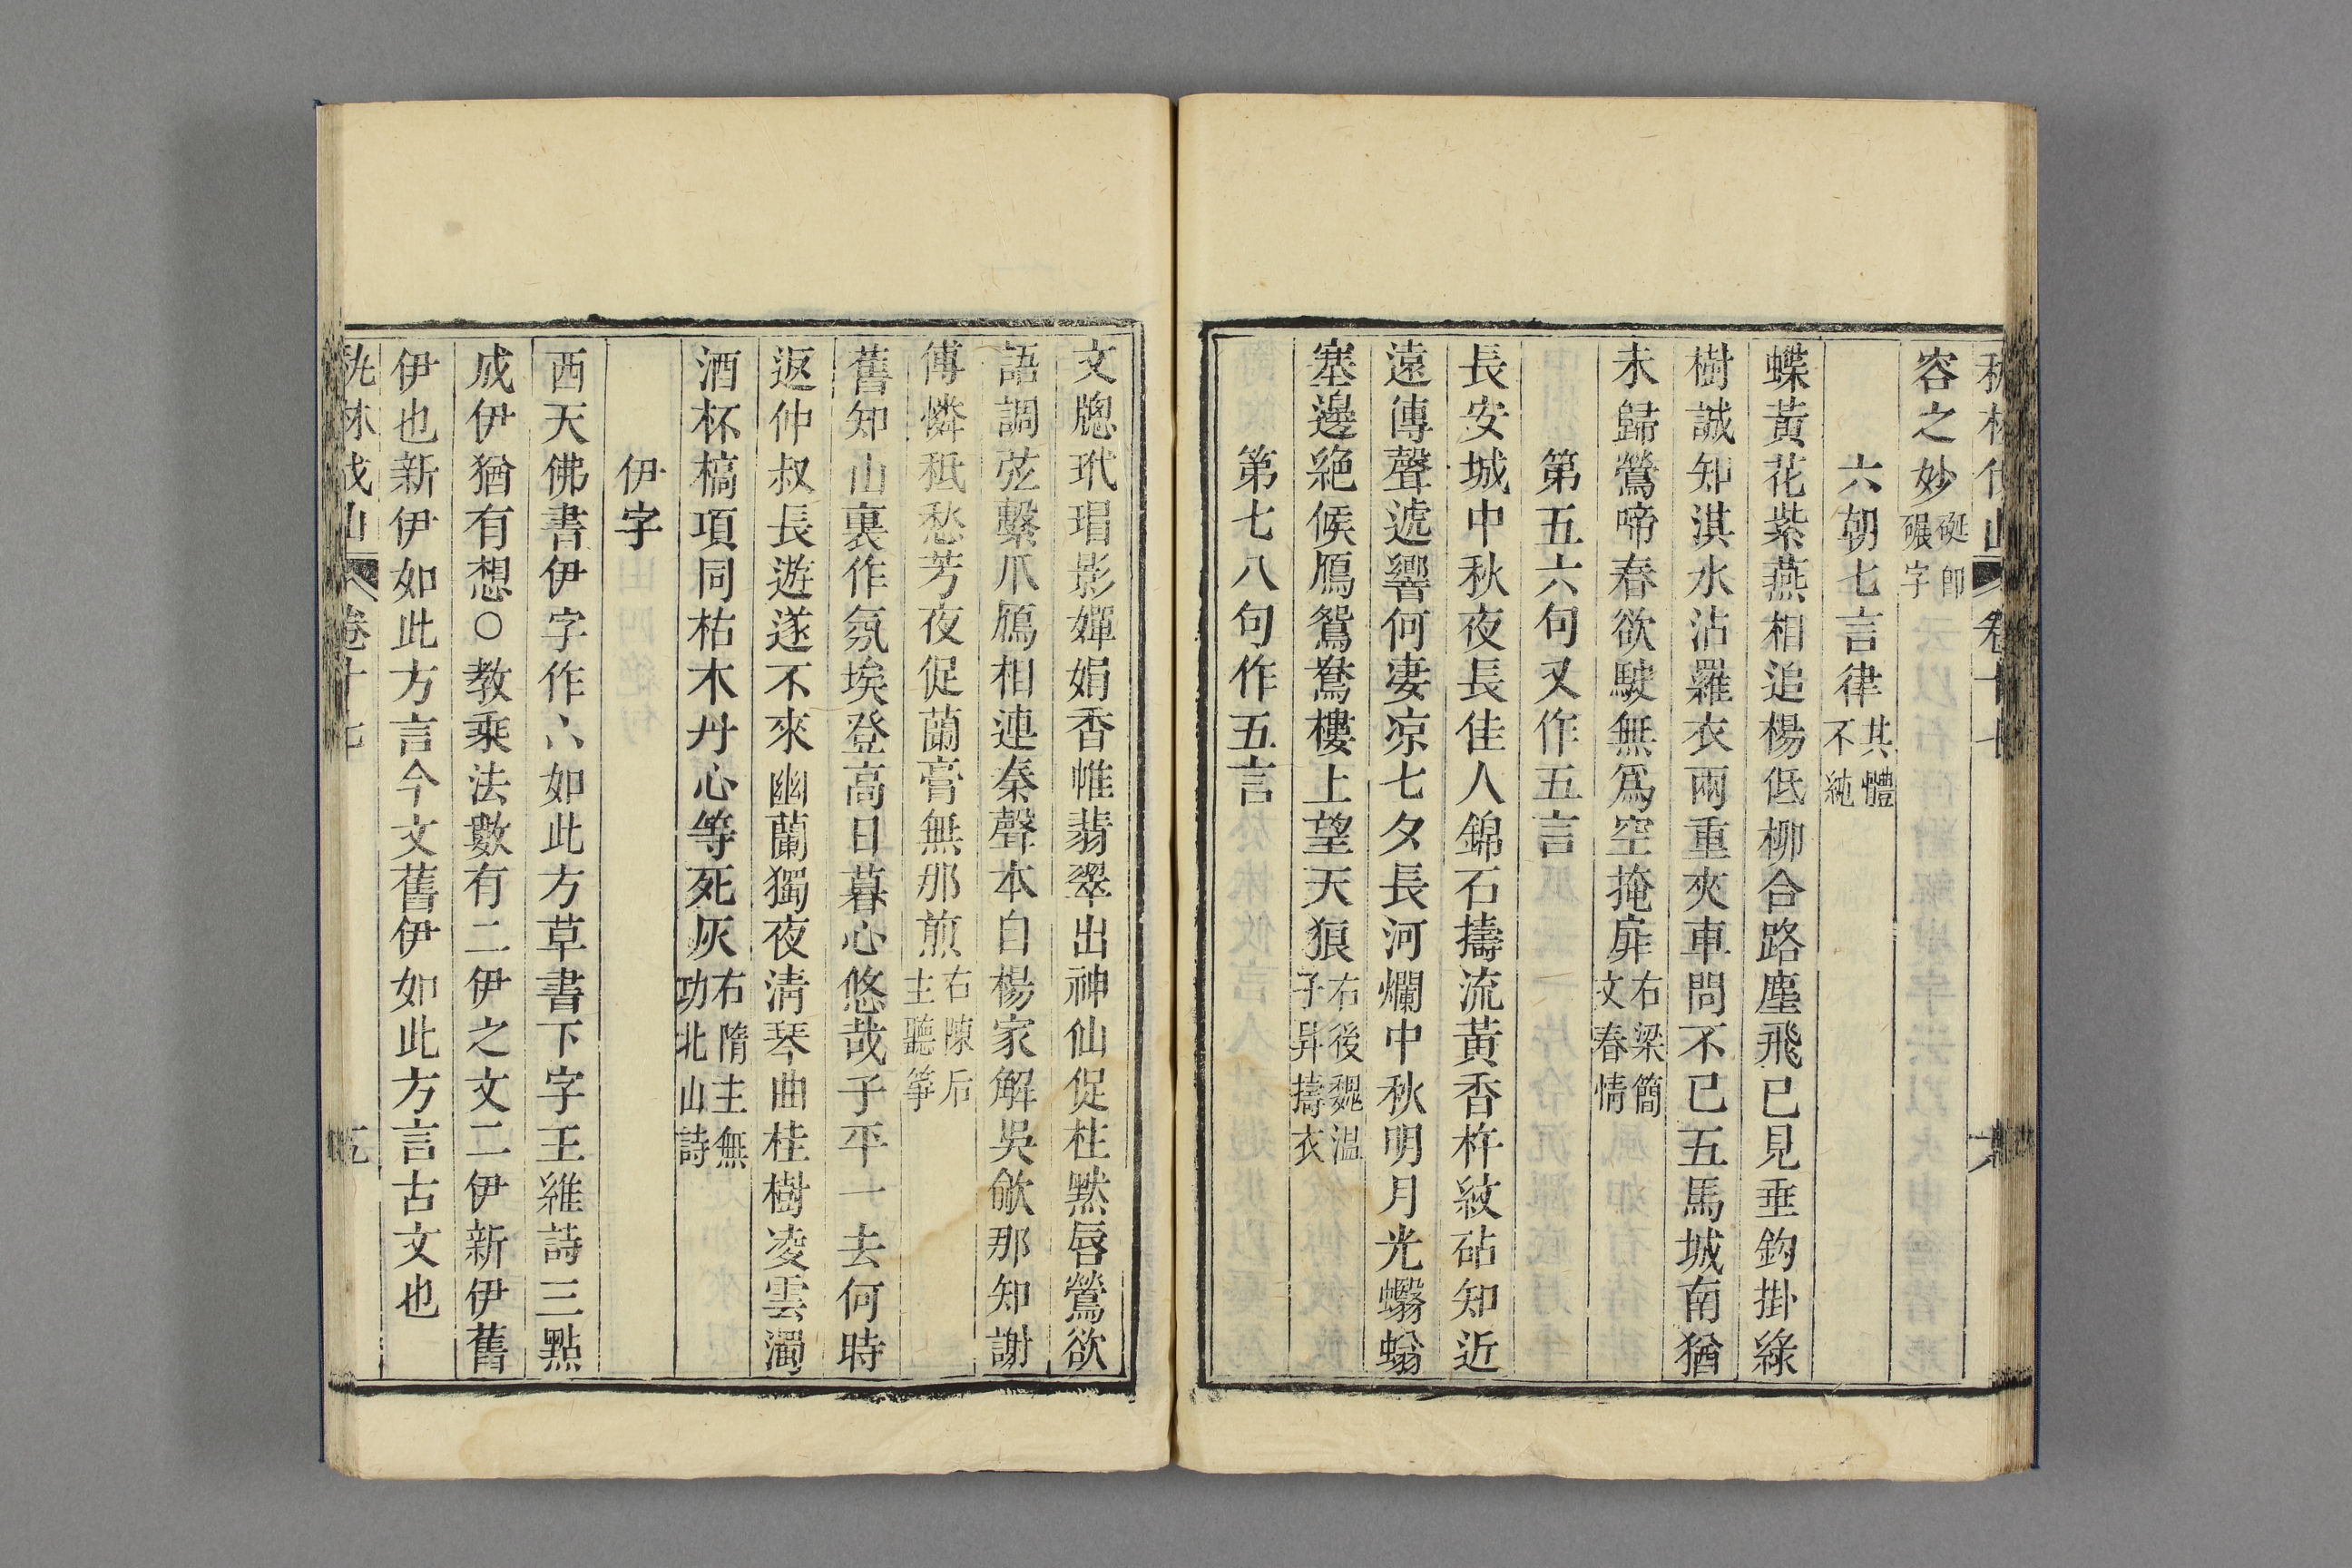 容之妙硟卽碾字
六朝七言律其體不純
蝶黃花紫燕相追楊低柳合路塵飛已見垂鈎掛綠
樹誠知淇水沾羅衣兩重夾車問不已五馬城南猶
未歸鶯啼春欲駛無爲空掩扉右梁簡文春情
第五六句又作五言
長安城中秋夜長佳人錦石擣流黃香杵紋砧知近
遠傳聲遞響何凄凉七夕長河爛中秋明月光蠮螉
塞邊絶候鴈鴛鴦樓上望天狼右後魏溫子昇擣衣
第七八句作五言
文牕玳瑁影嬋娟香帷翡翠出神仙促柱黙唇鶯欲
語調弦繫爪鴈相連秦聲本自楊家解吳歈那知謝
傅憐秪愁芳夜促蘭膏無那煎右陳后主聽筝
舊知山裏作氛埃登高日暮心悠哉子平一去何時
返仲叔長遊遂不來幽蘭獨夜淸琴曲桂樹凌雲濁
酒杯槁項同枯木丹心等死灰右隋主無功北山詩
伊字
西天佛書伊字作∴如此方草書下字王維詩三點
成伊猶有想○敎乘法數有二伊之文二伊新伊舊
伊也新伊如此方言今文舊伊如此方言古文也
卷十七